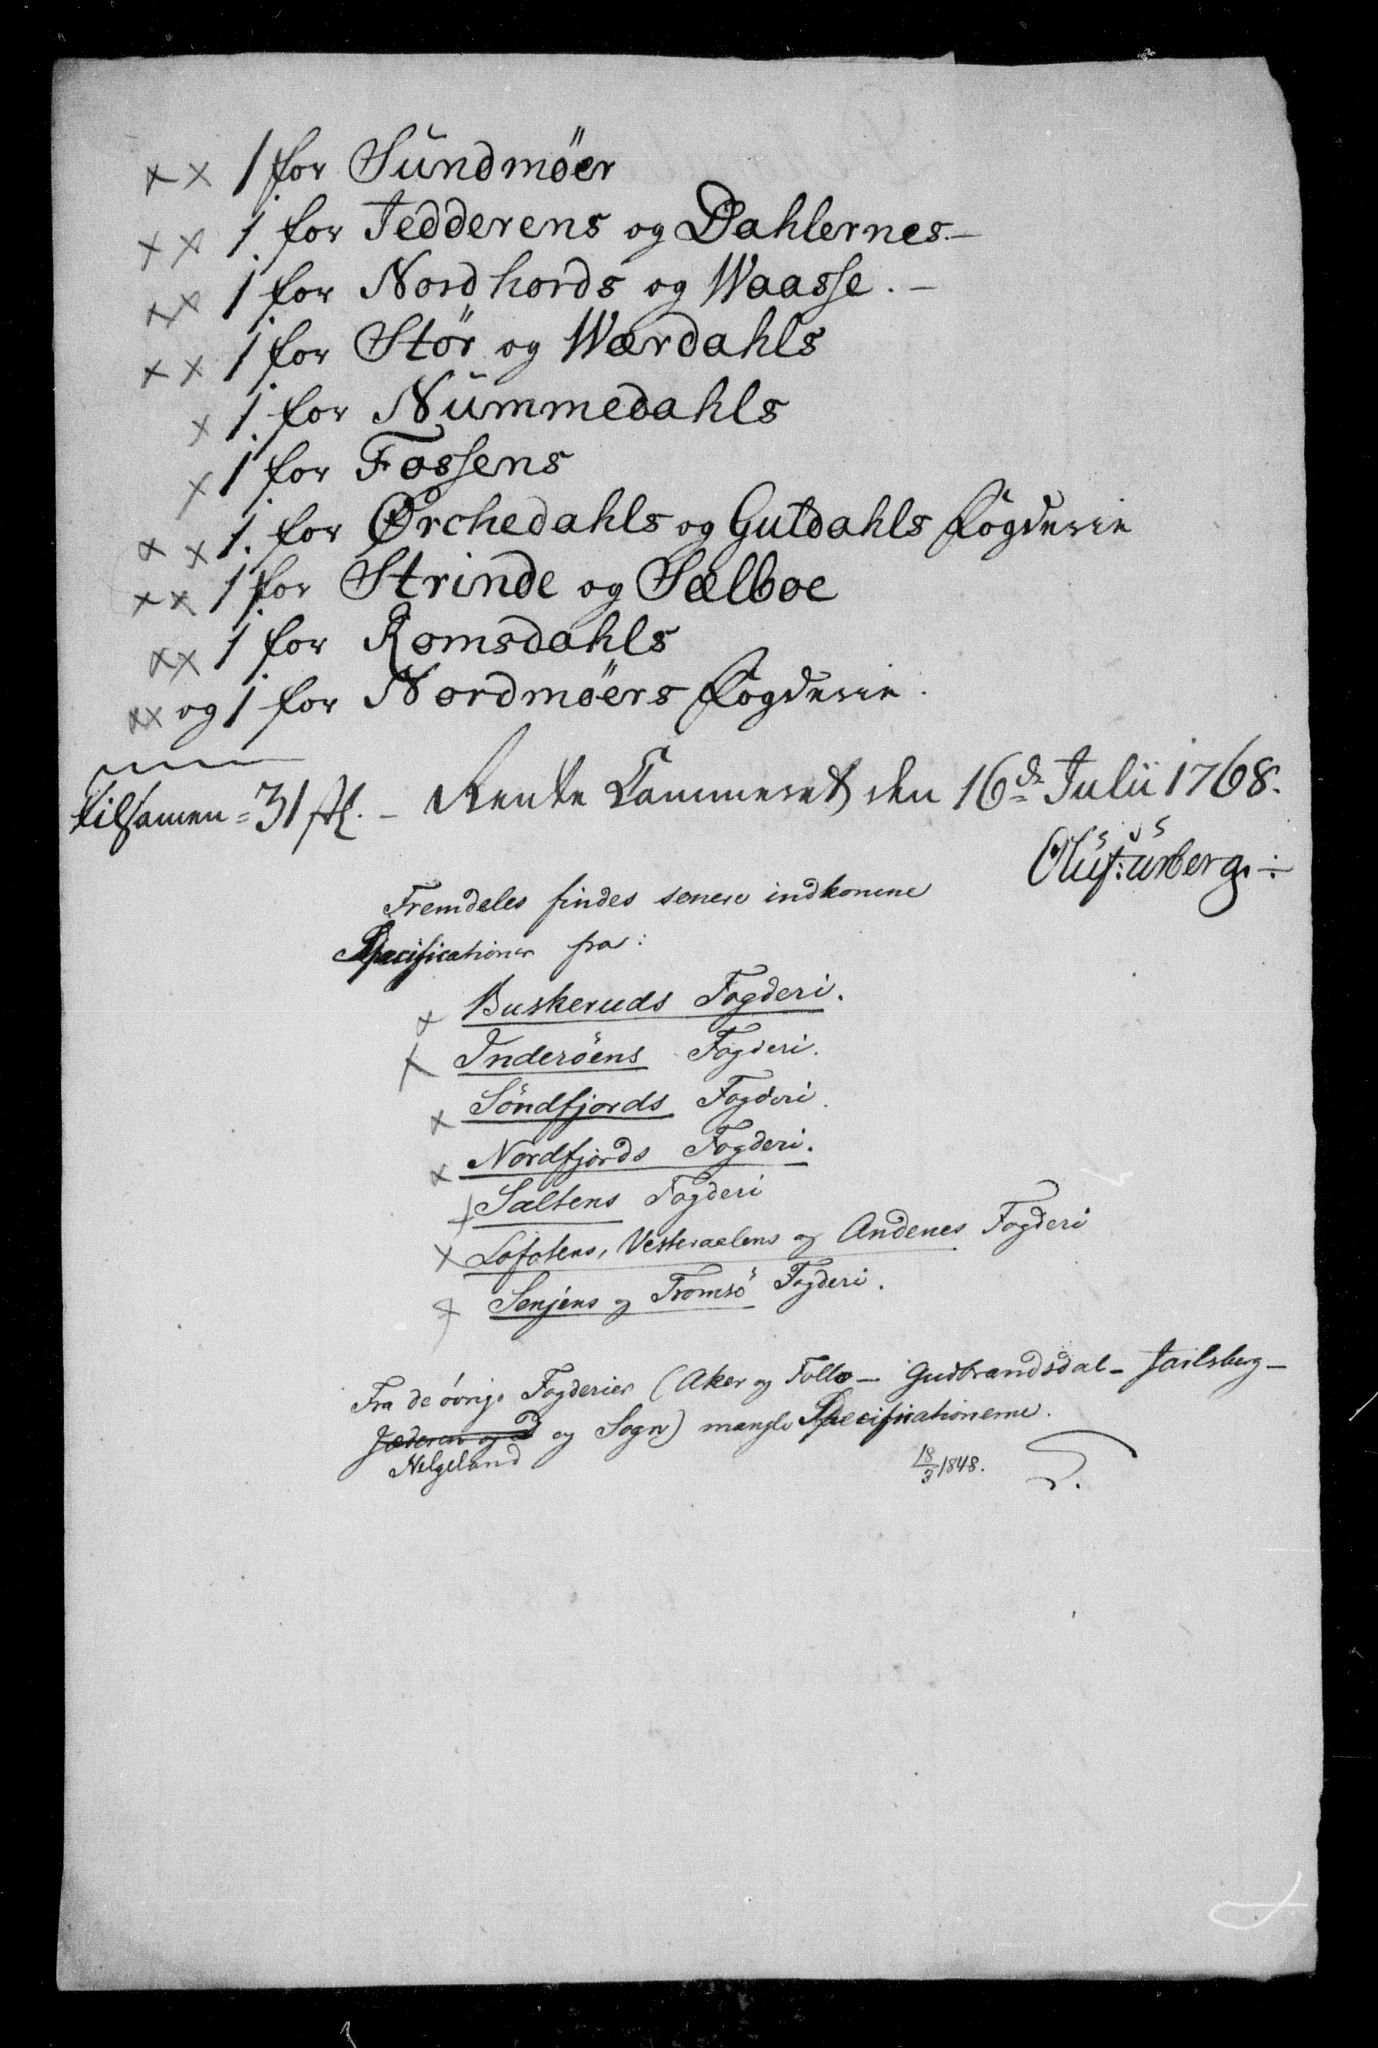 ×× 1 for Sŭndmöer
×× 1 for Jedderens og Dahlernes.—
×× 1 for Nordhords og Waasse. —
×× 1 for Stör og Wærdahls
× 1 for Nŭmmedahls
× 1 for Fossens
× × 1. for Ørchedahls og Guldahls Fogderie
×× 1 for Strinde og Sælboe
×× 1 for Romsdahls
×× og 1 for Nordmöers Fogderie.
Tilsamen = 31 stk. — Rente Cammeret den 16de Julii 1768.
Fremdeles findes senere indkomne
Specificationer fra:
× Buskeruds Fogderi.
× Inderöens Fogderi.
× Söndfjords Fogderi.
× Nordfjords Fogderi.
× Saltens Fogderi
× Lofotens, Vesteraalens og Andenes Fogderi
× Senjens og Tromsö Fogderi.
Fra de övrige Fogderier (Aker og Follo — Gudbrandsdal — Jarlsberg —
Jæderen og D og Sogn) mangle Specificationerne.
Helgeland
18/3 1848.